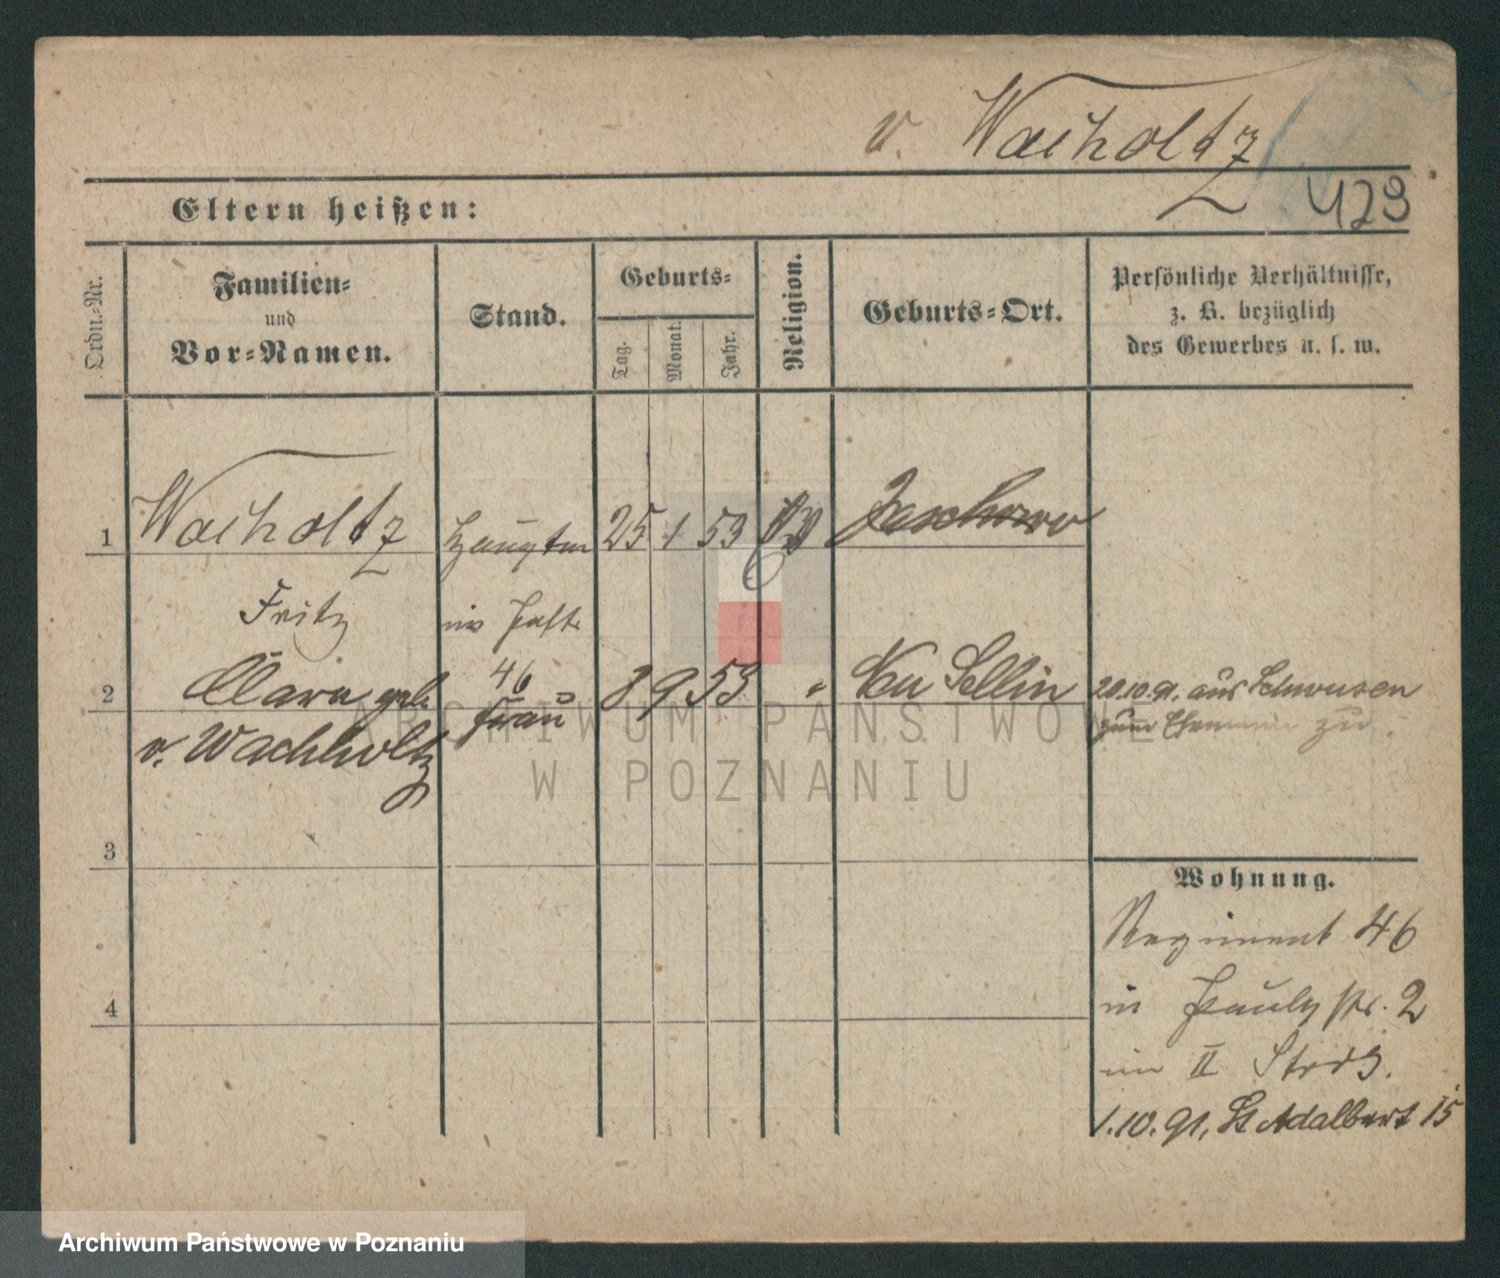 v. Wacholtz
Eltern heißen:
423
Ordn.-Nr.
Familien-
und
Vor-Namen.
Stand.
Geburts-
Tag.
Monat.
Jahr.
Religion.
Geburts-Ort.
Persönliche Verhältnisse,
z. B. bezüglich
des Gewerbes u. s. w.
1
Wacholtz
Hauptm
25
1
53
Ev
Jeschowo
Fritz
im
46
2
Clara geb.
Frau
8
9
53
"
Neu Sellin
20.10.91. aus Schwusen
zum Ehemann zu
v. Wachholtz
3
Wohnung.
Regiment 46
4
in Pauly str. 2
im II Strg.
1.10.91, St Adalbert 15
ARCHIWUM PAŃSTWOWE
W POZNANIU
Archiwum Państwowe w Poznaniu